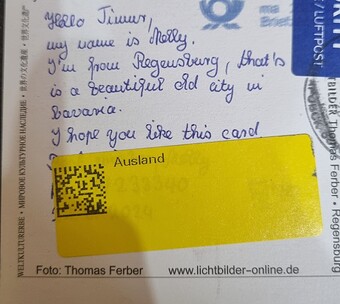 Hello Timur,
my name is Melly.
I'm from Regensburg, that's
is a beautiful old city in
Bavaria.
I hope you like this card
Ausland
Foto: Thomas Ferber
www.lichtbilder-online.de
WELTKULTURERBE • МИРОВОЕ КУЛЬТУРНОЕ НАСЛЕДИЕ • 世界の文化遺産 • 世界文化遗产
/LUFTPOST
Thomas Ferber • Regensburg